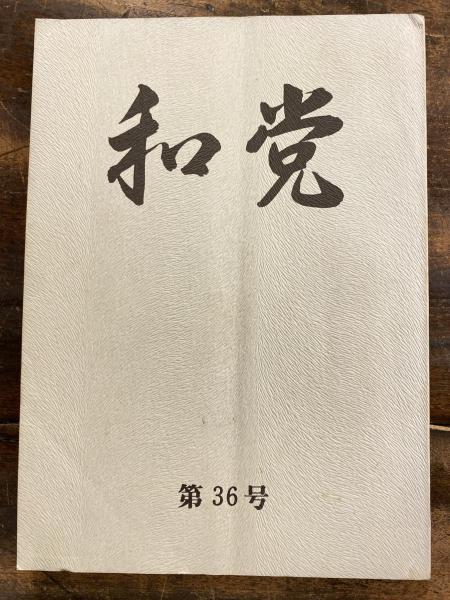 和党
第36号